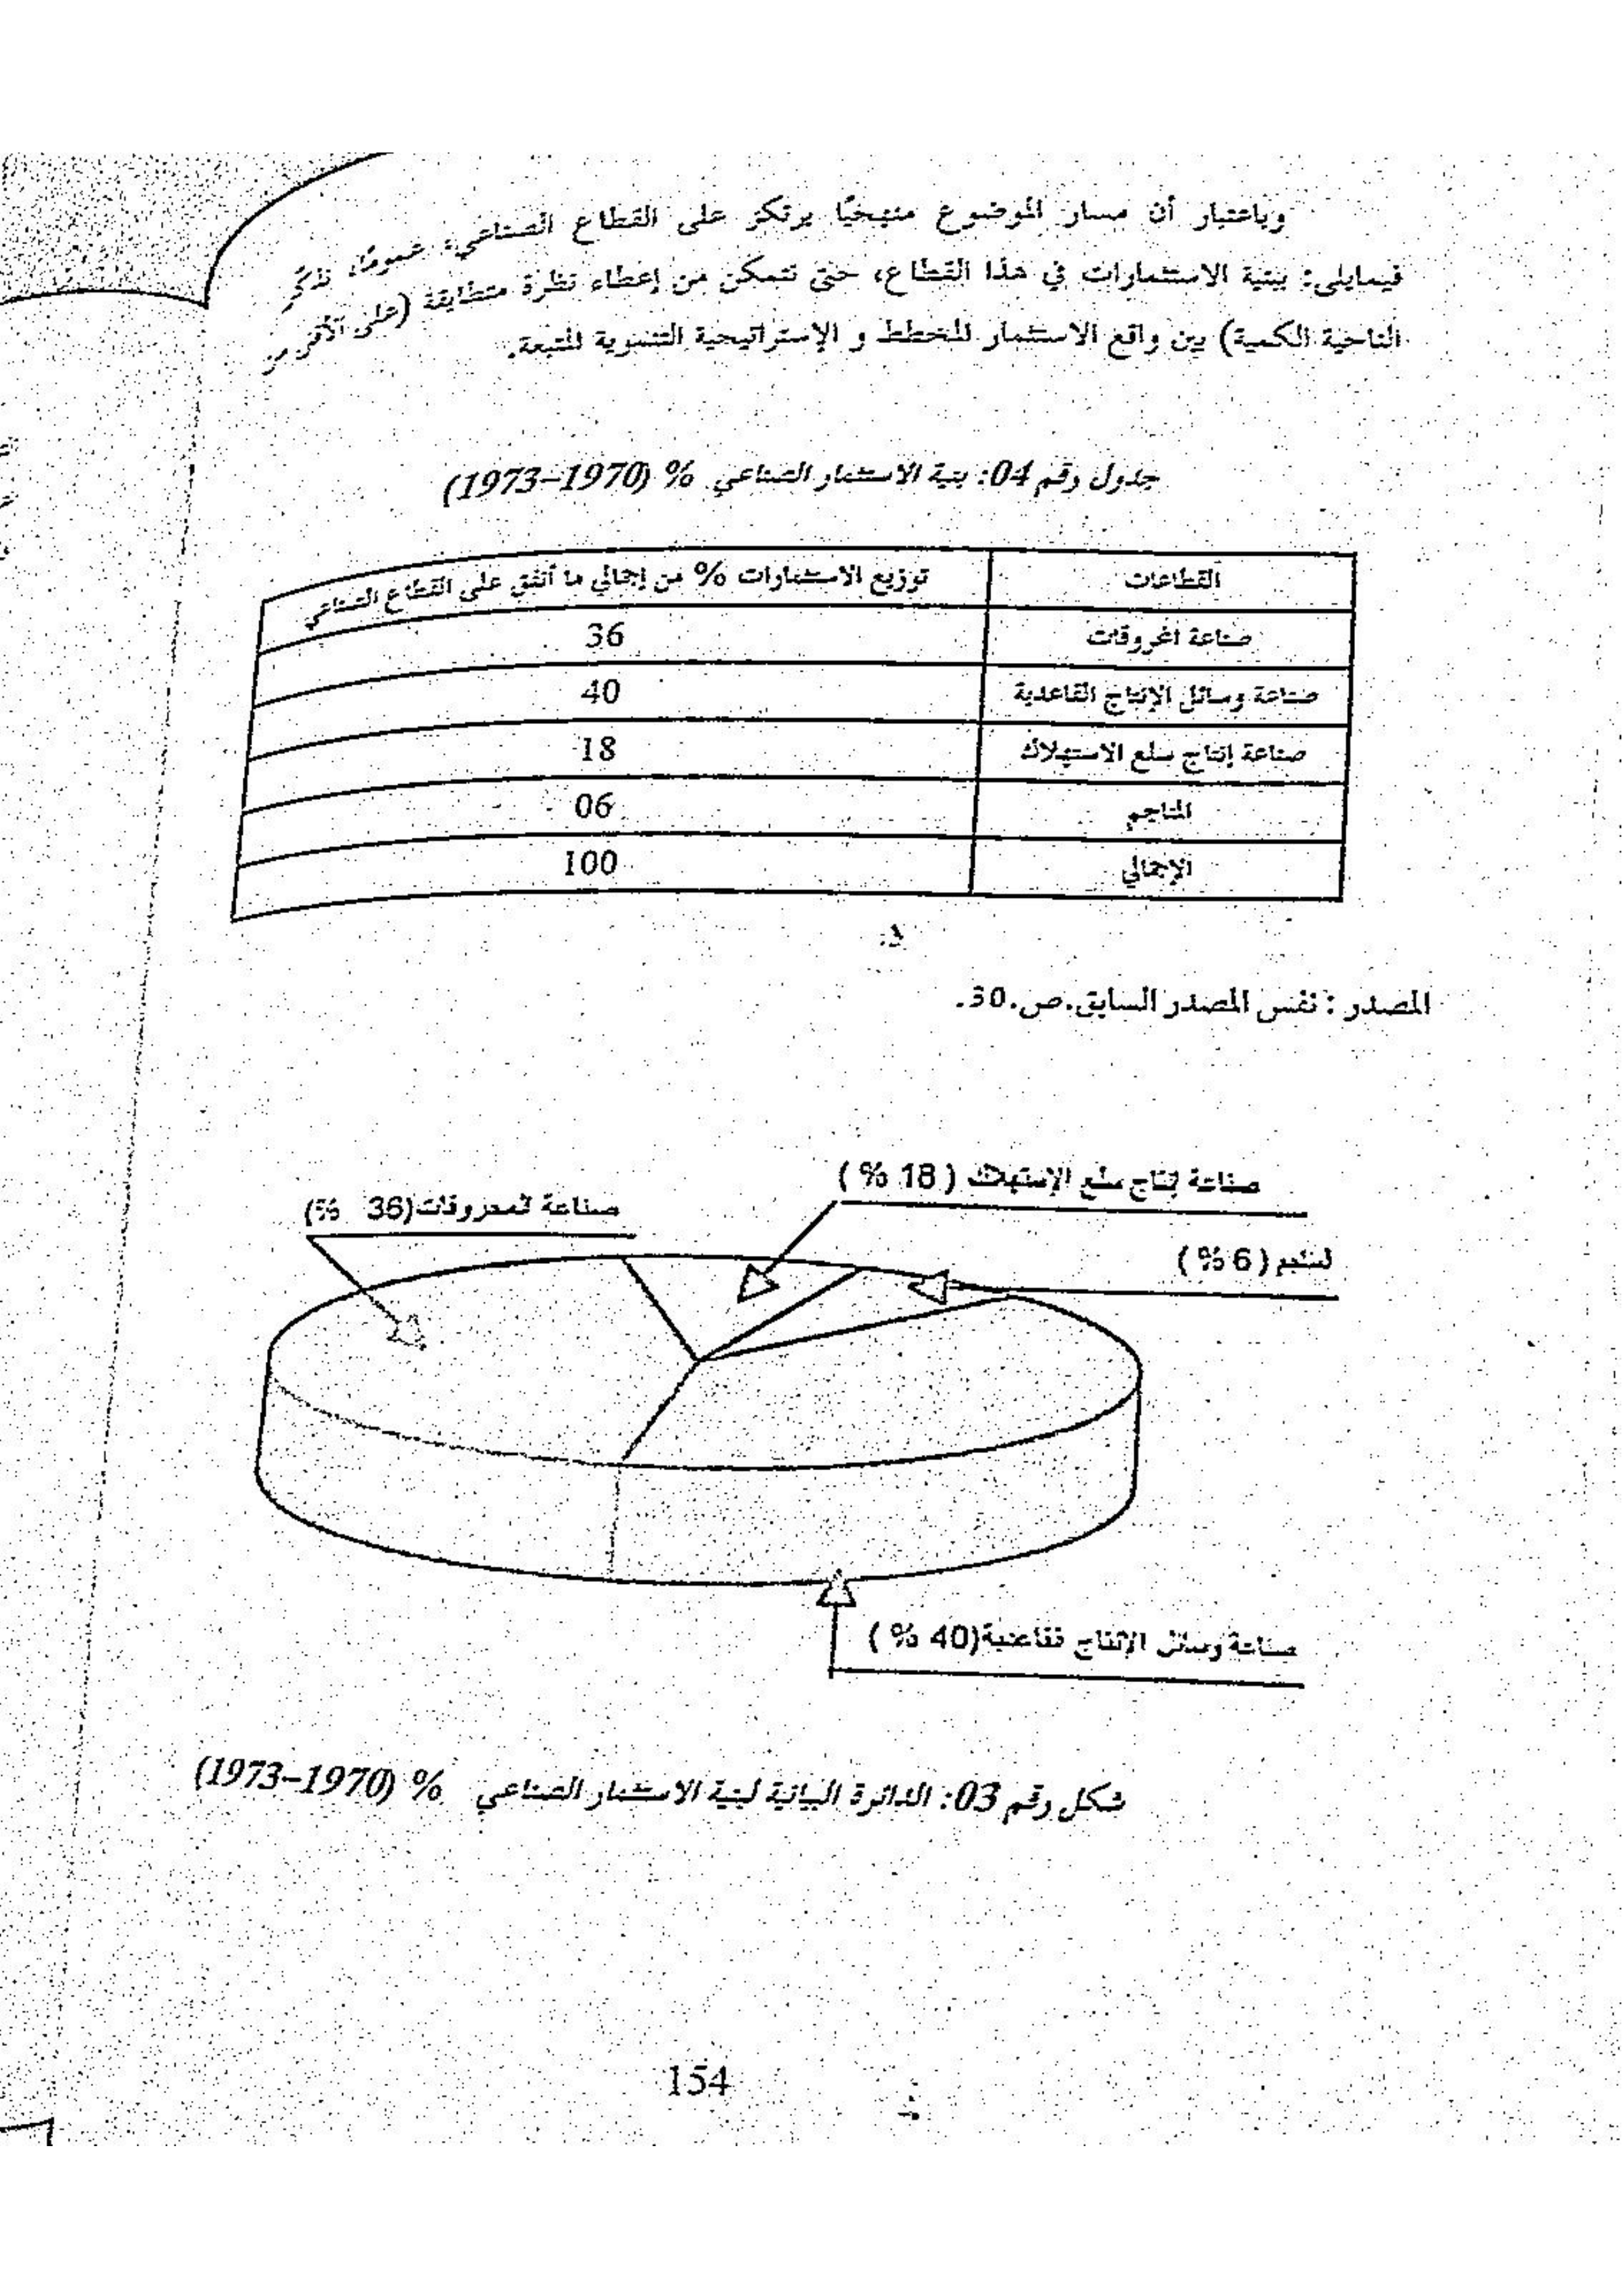 وباعتبار أن مسار الموضوع منهجيًا يرتكز على القطاع الصناعي، عمومًا، نذكّر
فيمايلي: ببنية الاستثمارات في هذا القطاع، حتى نتمكن من إعطاء نظرة متطابقة (على الأقل من
الناحية الكمية) بين واقع الاستثمار المخطط و الإستراتيجية التنموية المتبعة.
جدول رقم 04: بنية الاستثمار الصناعي % (1970-1973)
القطاعات توزيع الاستثمارات % من إجمالي ما أنفق على القطاع الصناعي
صناعة المحروقات 36
صناعة وسائل الإنتاج القاعدية 40
صناعة إنتاج سلع الاستهلاك 18
المناجم 06
الإجمالي 100
المصدر : نفس المصدر السابق.ص.30.
صناعة إنتاج سلع الإستهلاك ( 18 % )
صناعة المحروقات(36 %)
المناجم ( 6 % )
صناعة وسائل الإنتاج القاعدية(40 % )
شكل رقم 03: الدائرة البيانية لبنية الاستثمار الصناعي % (1970-1973)
154